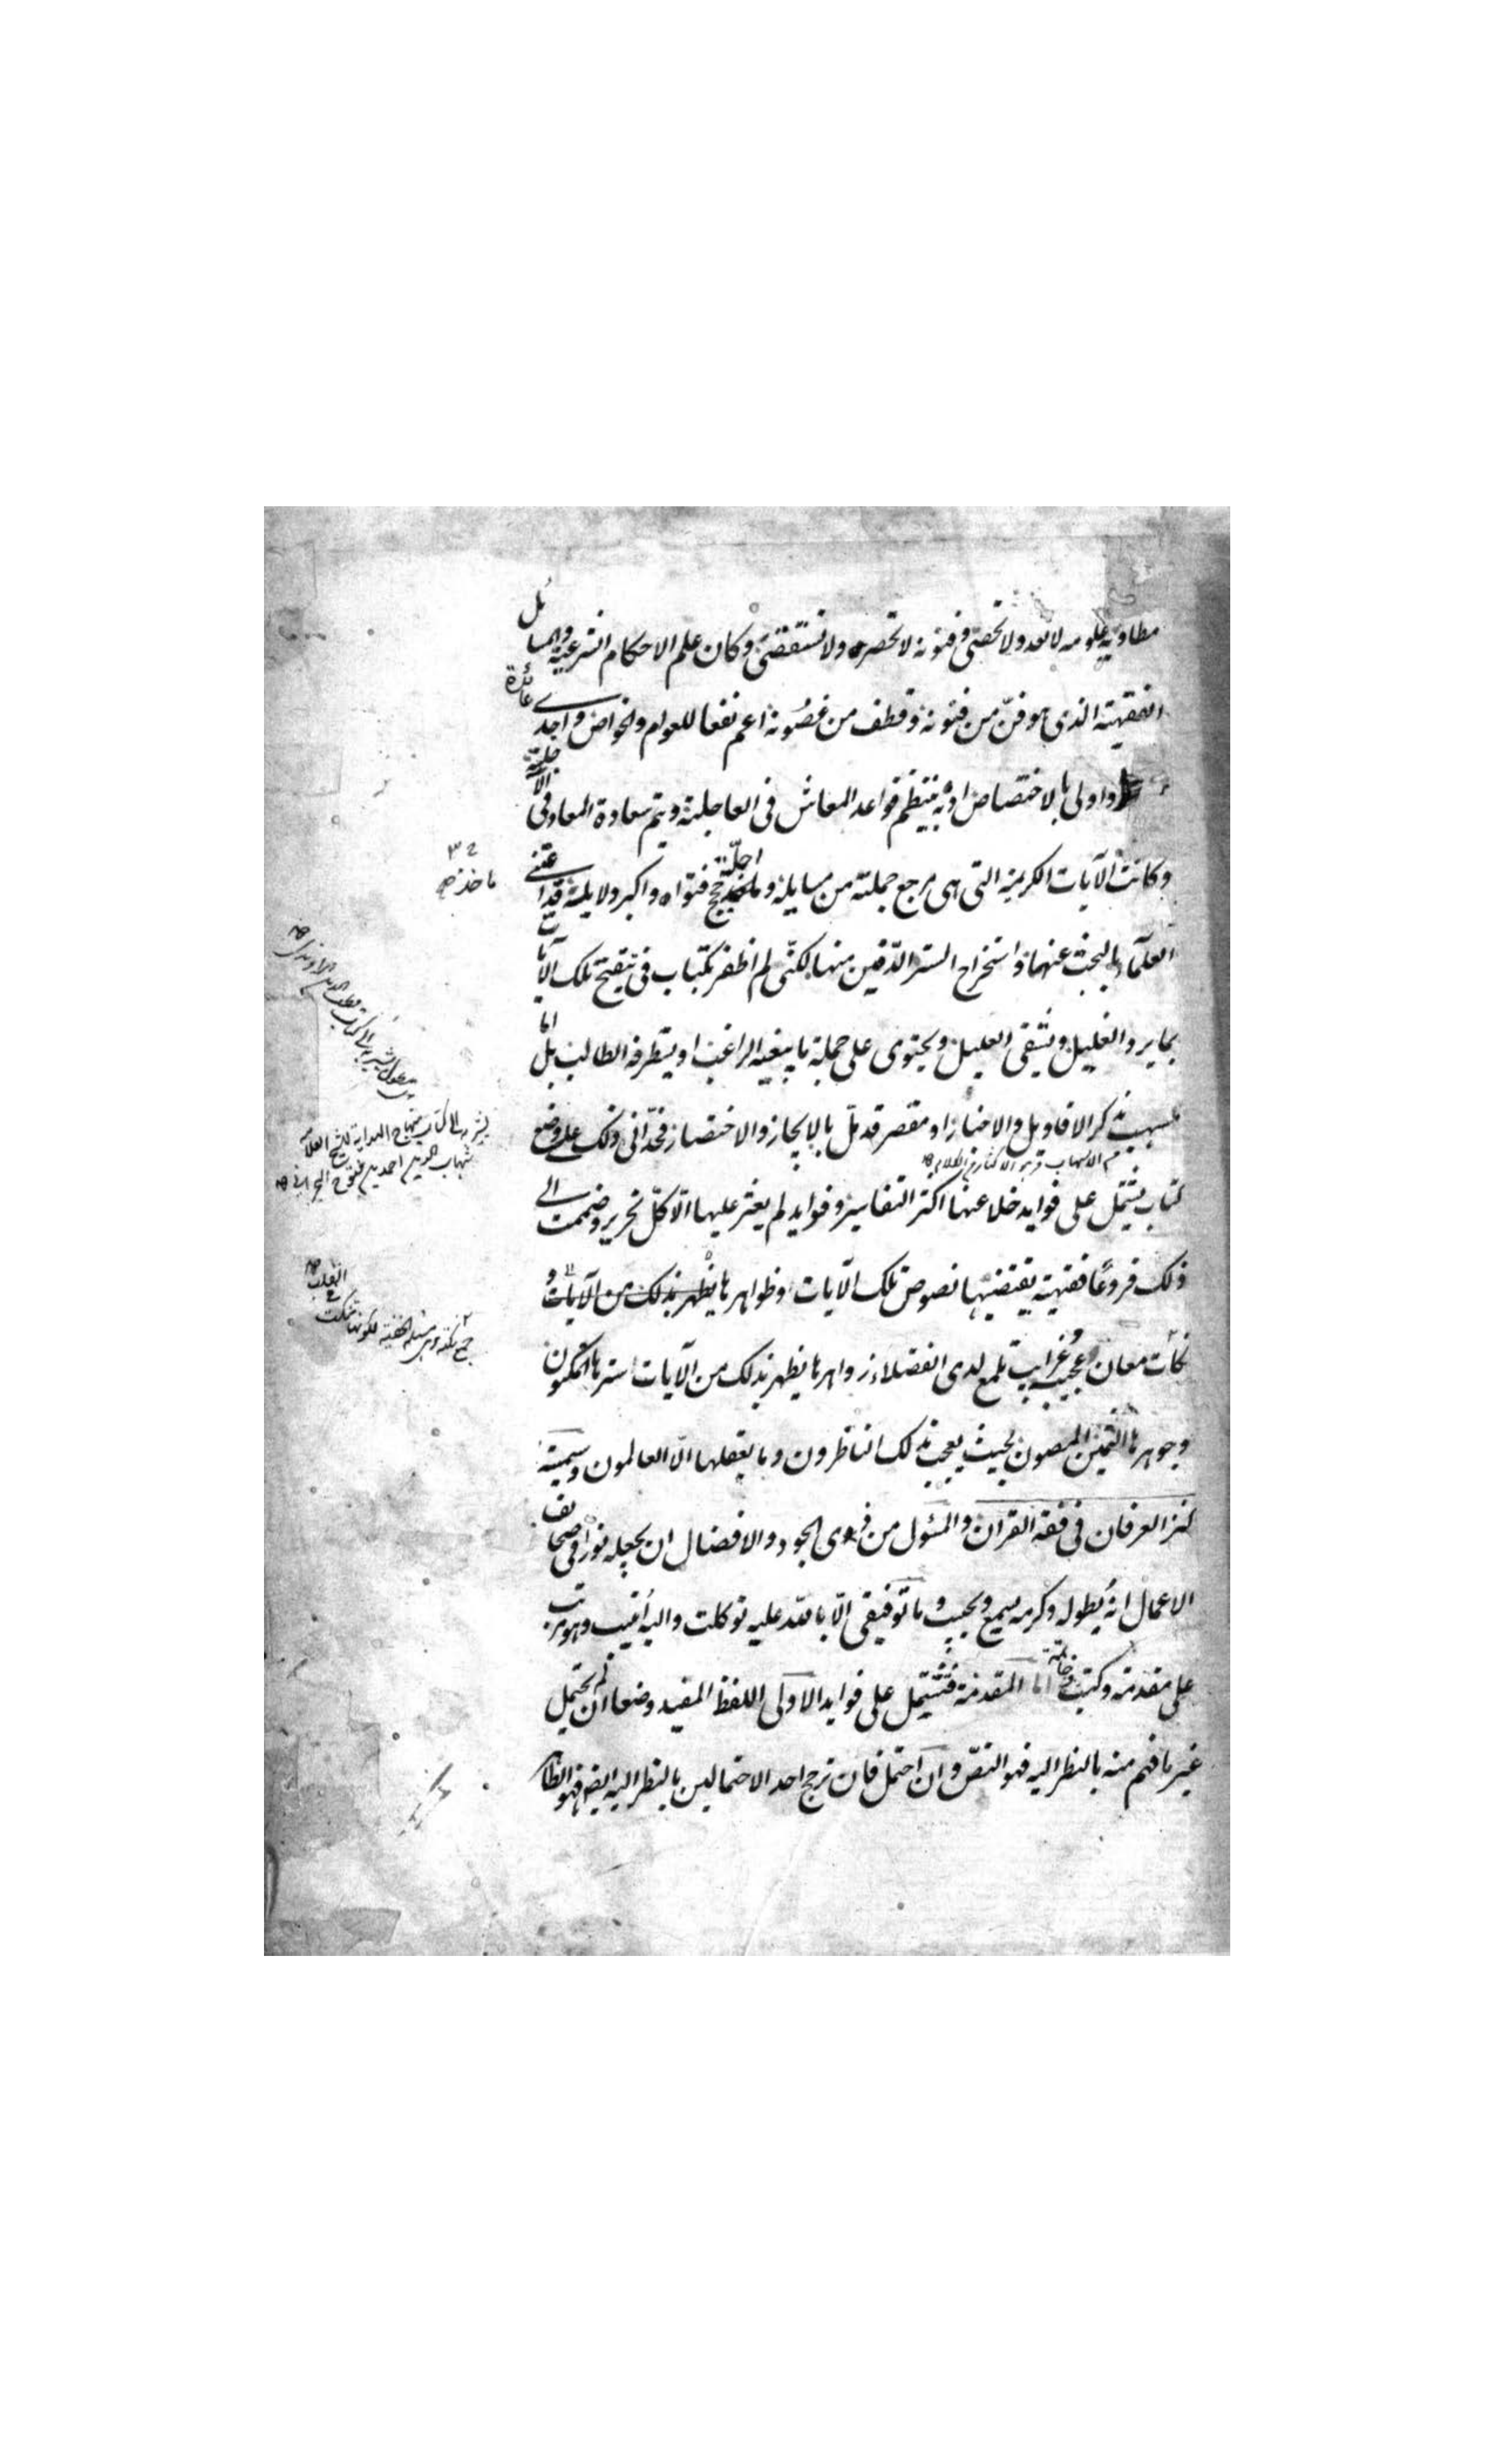 مطاويه علومه لا تعد ولا تحصى وفنونه لا تحصر ولا تستقصى وكان علم الاحكام الشرعية والمسائل
الفقهية الذى هو فنّ من فنونه وقطف من غصونه اعم نفعا للعوام والخواص واجدى عائدة
واولى بالاختصاص اذ به ينتظم قواعد المعاش فى العاجلة ويتم سعادة المعاد فى الآجلة
وكانت الآيات الكريمة التى هى مرجع جملة من مسايله و اجلّة حجج فتواه واكبر دلايله قد اعتنى
العلمآء بالبحث عنها واستخراج السر الدّفين منها لكنّى لم اظفر بكتاب فى تنقيح تلك الآيات
بما يبرد الغليل ويشفى العليل ويحتوى على جملة ما يبغيه الراغب او يستطرفه الطالب بل اما
مسهب بذكر الاقاويل والاخبار او مقصر قد ملّ بالايجاز والاختصار فحدّانى ذلك على وضع
كتاب يشتمل على فوايد خلا عنها اكثر التفاسير وفوايد لم يعثر عليها الّا كلّ نحرير وضممت الى
ذلك فروعًا فقهية يقتضيها نصوص تلك الآيات او ظواهرها يظهر بذلك من الآيات و
نكات معان عجيبة وغرايب تلمع لدى الفضلاء زواهرها يظهر بذلك من الآيات اسرارها المكنون
وجوهرها الثمين المصون بحيث يعجب بذلك الناظرون وما يعقلها الّا العالمون وسميته
كنز العرفان فى فقه القران والمسئول من ذوى الجود والافضال ان يجعله نورًا فى صحايف
الاعمال انه بطوله وكرمه سميع ومجيب وما توفيقى الّا بالله عليه توكلت واليه انيب وهو مرتب
على مقدمة وكتب وخاتمة اما المقدمة فتشتمل على فوايد الاولى اللفظ المفيد وضعا ان لم يحتمل
غير ما فهم منه بالنظر اليه فهو النصّ وان احتمل فان ترجح احد الاحتمالين بالنظر اليه ايضا فهو الظاهر
ماخذ
يشير الى كتاب منهاج الهداية للشيخ العلامة
شهاب الدين احمد بن متوج البحرانى